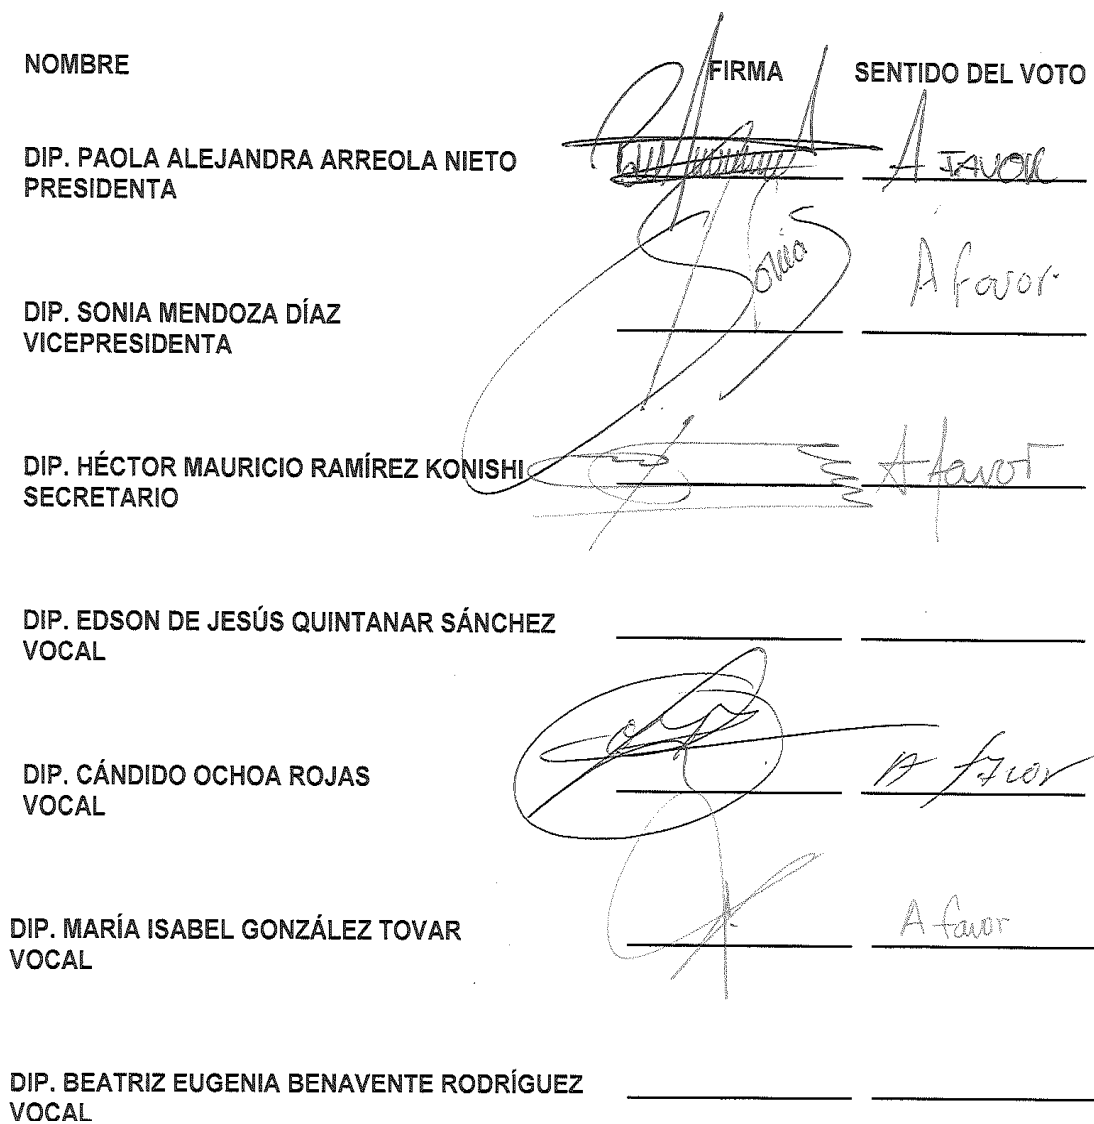 NOMBRE FIRMA SENTIDO DEL VOTO
DIP. PAOLA ALEJANDRA ARREOLA NIETO
PRESIDENTA A FAVOR
DIP. SONIA MENDOZA DÍAZ Sonia A favor.
VICEPRESIDENTA
DIP. HÉCTOR MAURICIO RAMÍREZ KONISHI A favor
SECRETARIO
DIP. EDSON DE JESÚS QUINTANAR SÁNCHEZ
VOCAL
DIP. CÁNDIDO OCHOA ROJAS A favor
VOCAL
DIP. MARÍA ISABEL GONZÁLEZ TOVAR A favor
VOCAL
DIP. BEATRIZ EUGENIA BENAVENTE RODRÍGUEZ
VOCAL